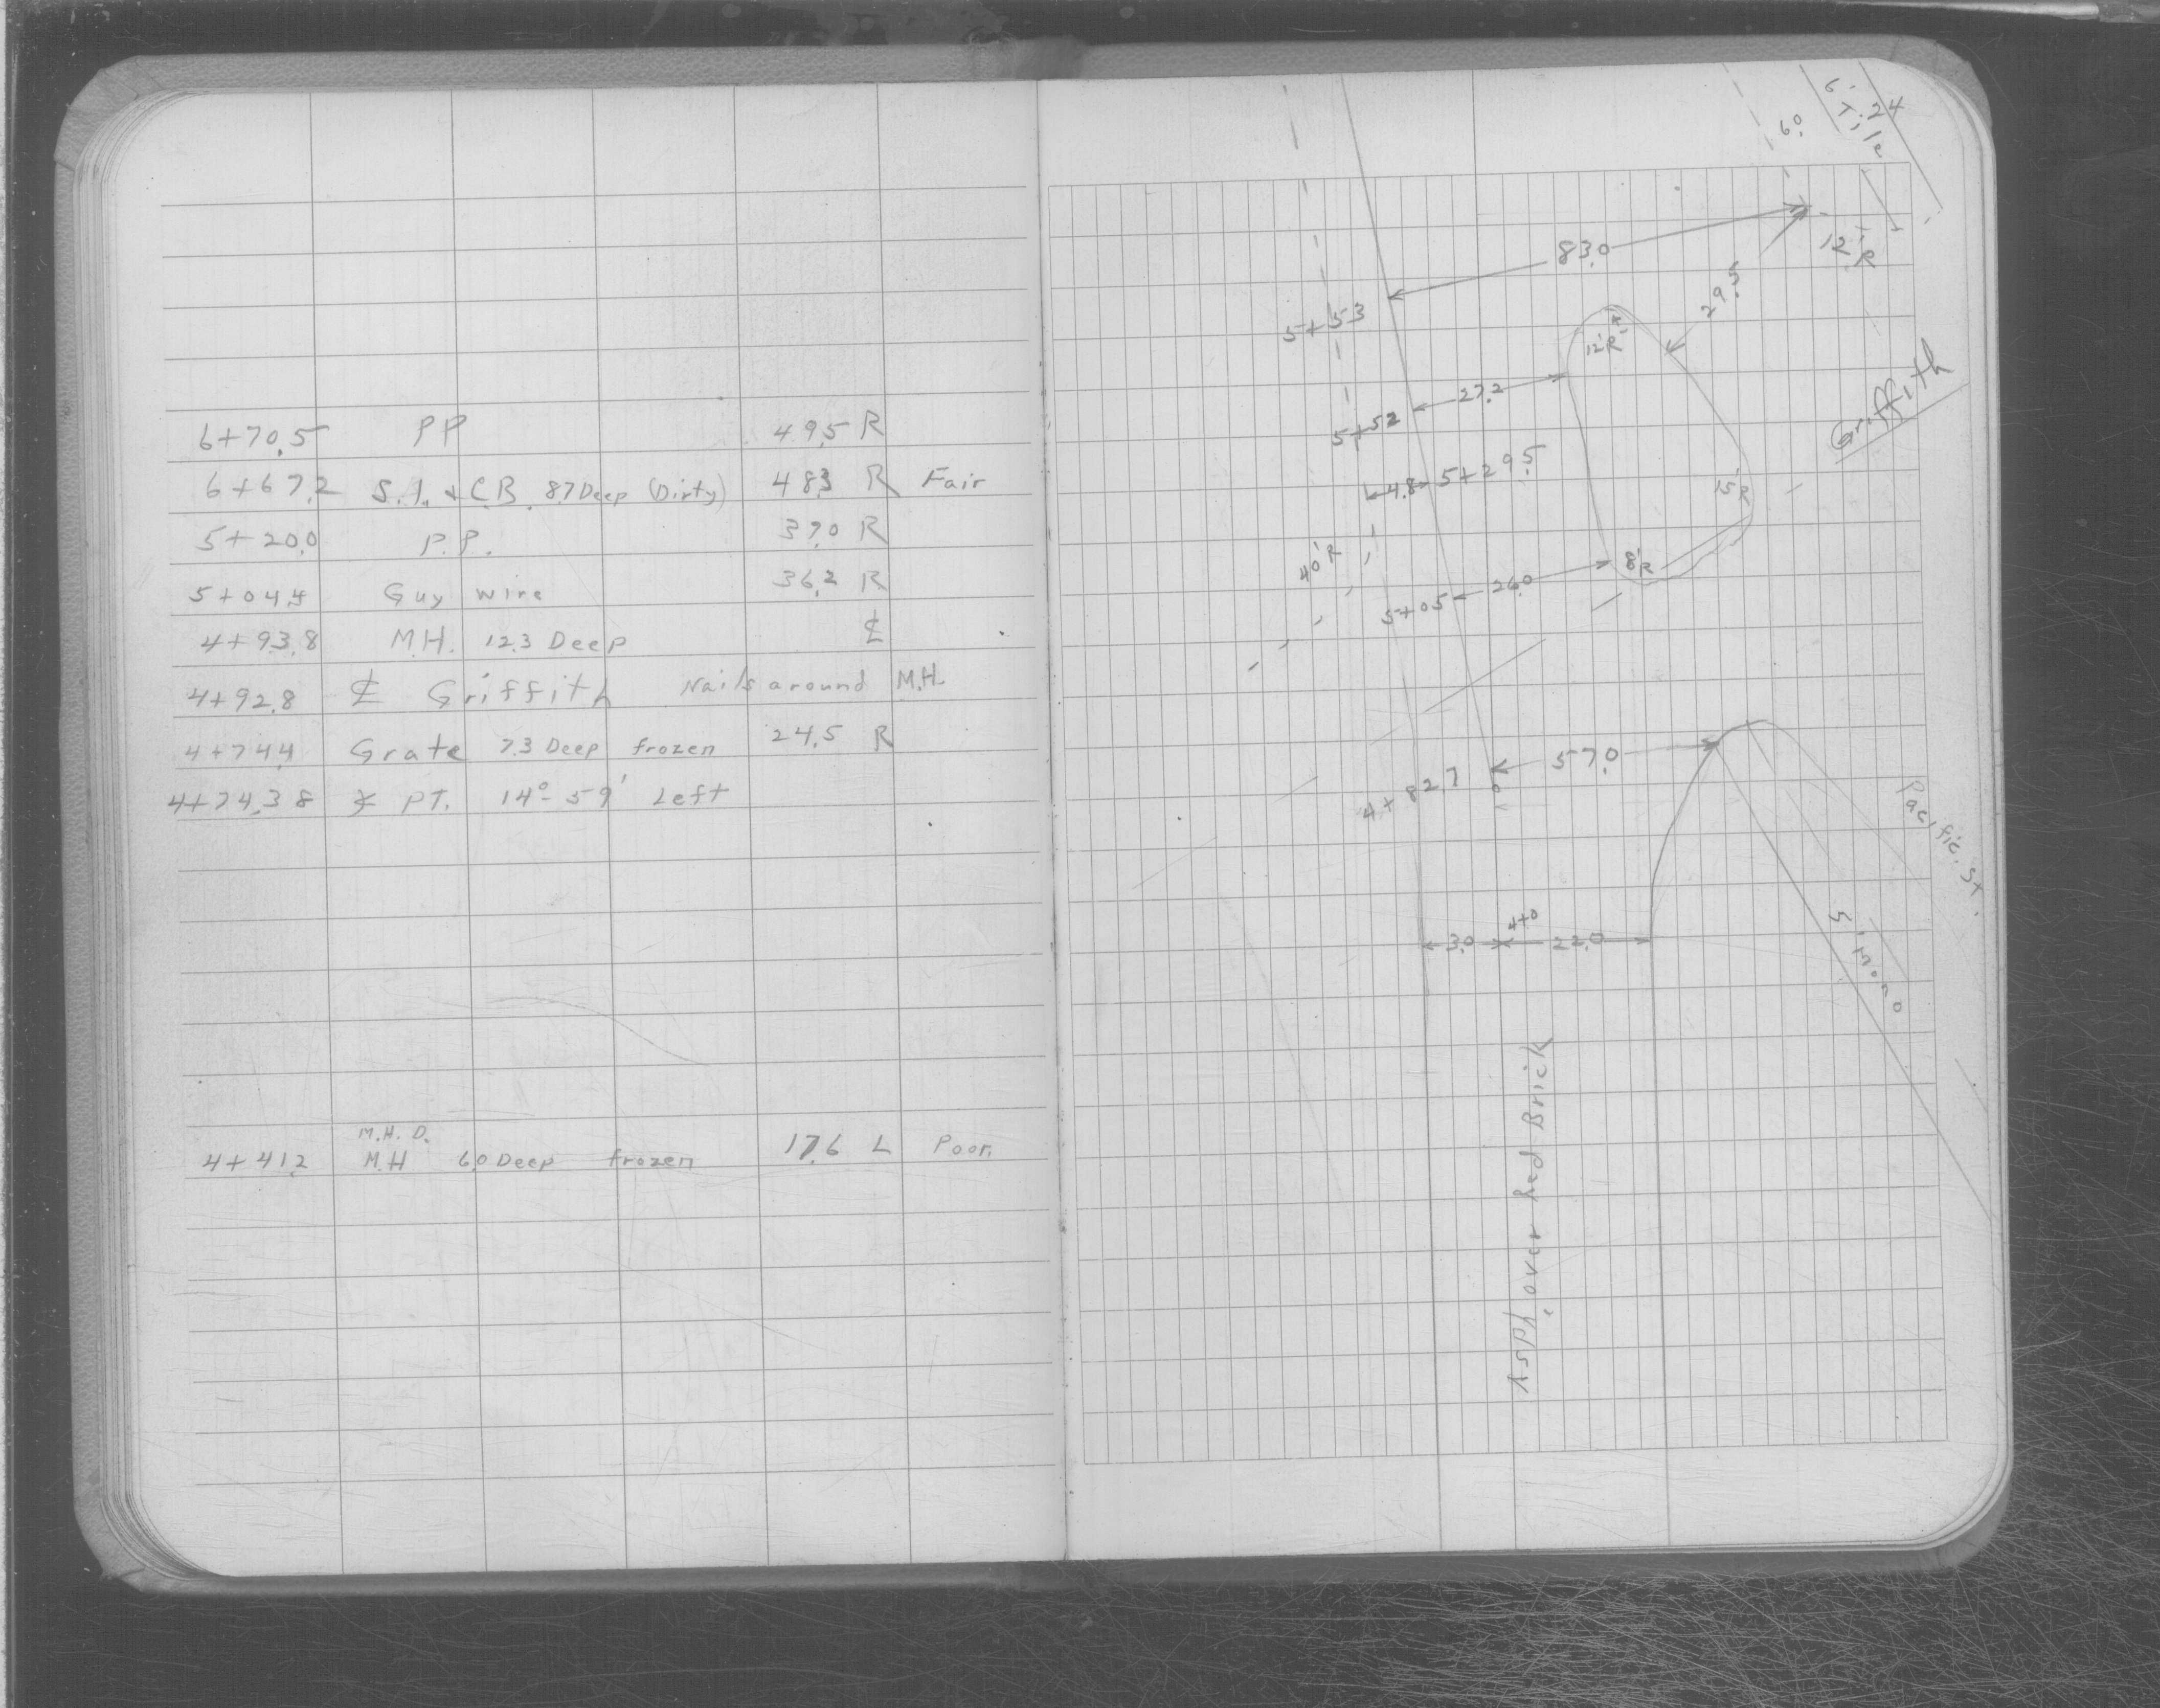 6+70.5 PP 49.5 R
6+67.2 S.I. & C.B. 8.7 Deep (Dirty) 48.3 R Fair
5+20.0 P.P. 37.0 R
5+04.4 Guy wire 36.2 R
4+93.8 M.H. 12.3 Deep ℄
4+92.8 ℄ Griffith Nails around M.H.
4+74.4 Grate 7.3 Deep frozen 24.5 R
4+74.38 PT. 14°-59' Left
M.H. D.
4+41.2 M.H 6.0 Deep frozen 17.6 L Poor
6' 24
Tile
6.0
83.0
12' R
5+53
29.5
12'R
27.2
5+52
Griffith
4.8 5+29.5
15'R
40'R
8'R
5+05 26.0
57.0
4+82.7
Pacific St.
4+0
3.0 22.0
Asph. over Red Brick